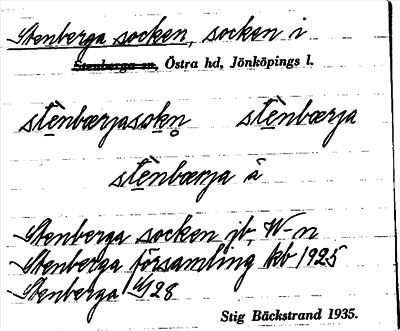 Stenberga socken, socken i
Stenberga sn, Östra hd, Jönköpings l.
stènbærjasokn̥ stènbærja
stènbærja å
Stenberga socken jb, W-n
Stenberga församling kb 1925
Stenberga 1/1 28
Stig Bäckstrand 1935.